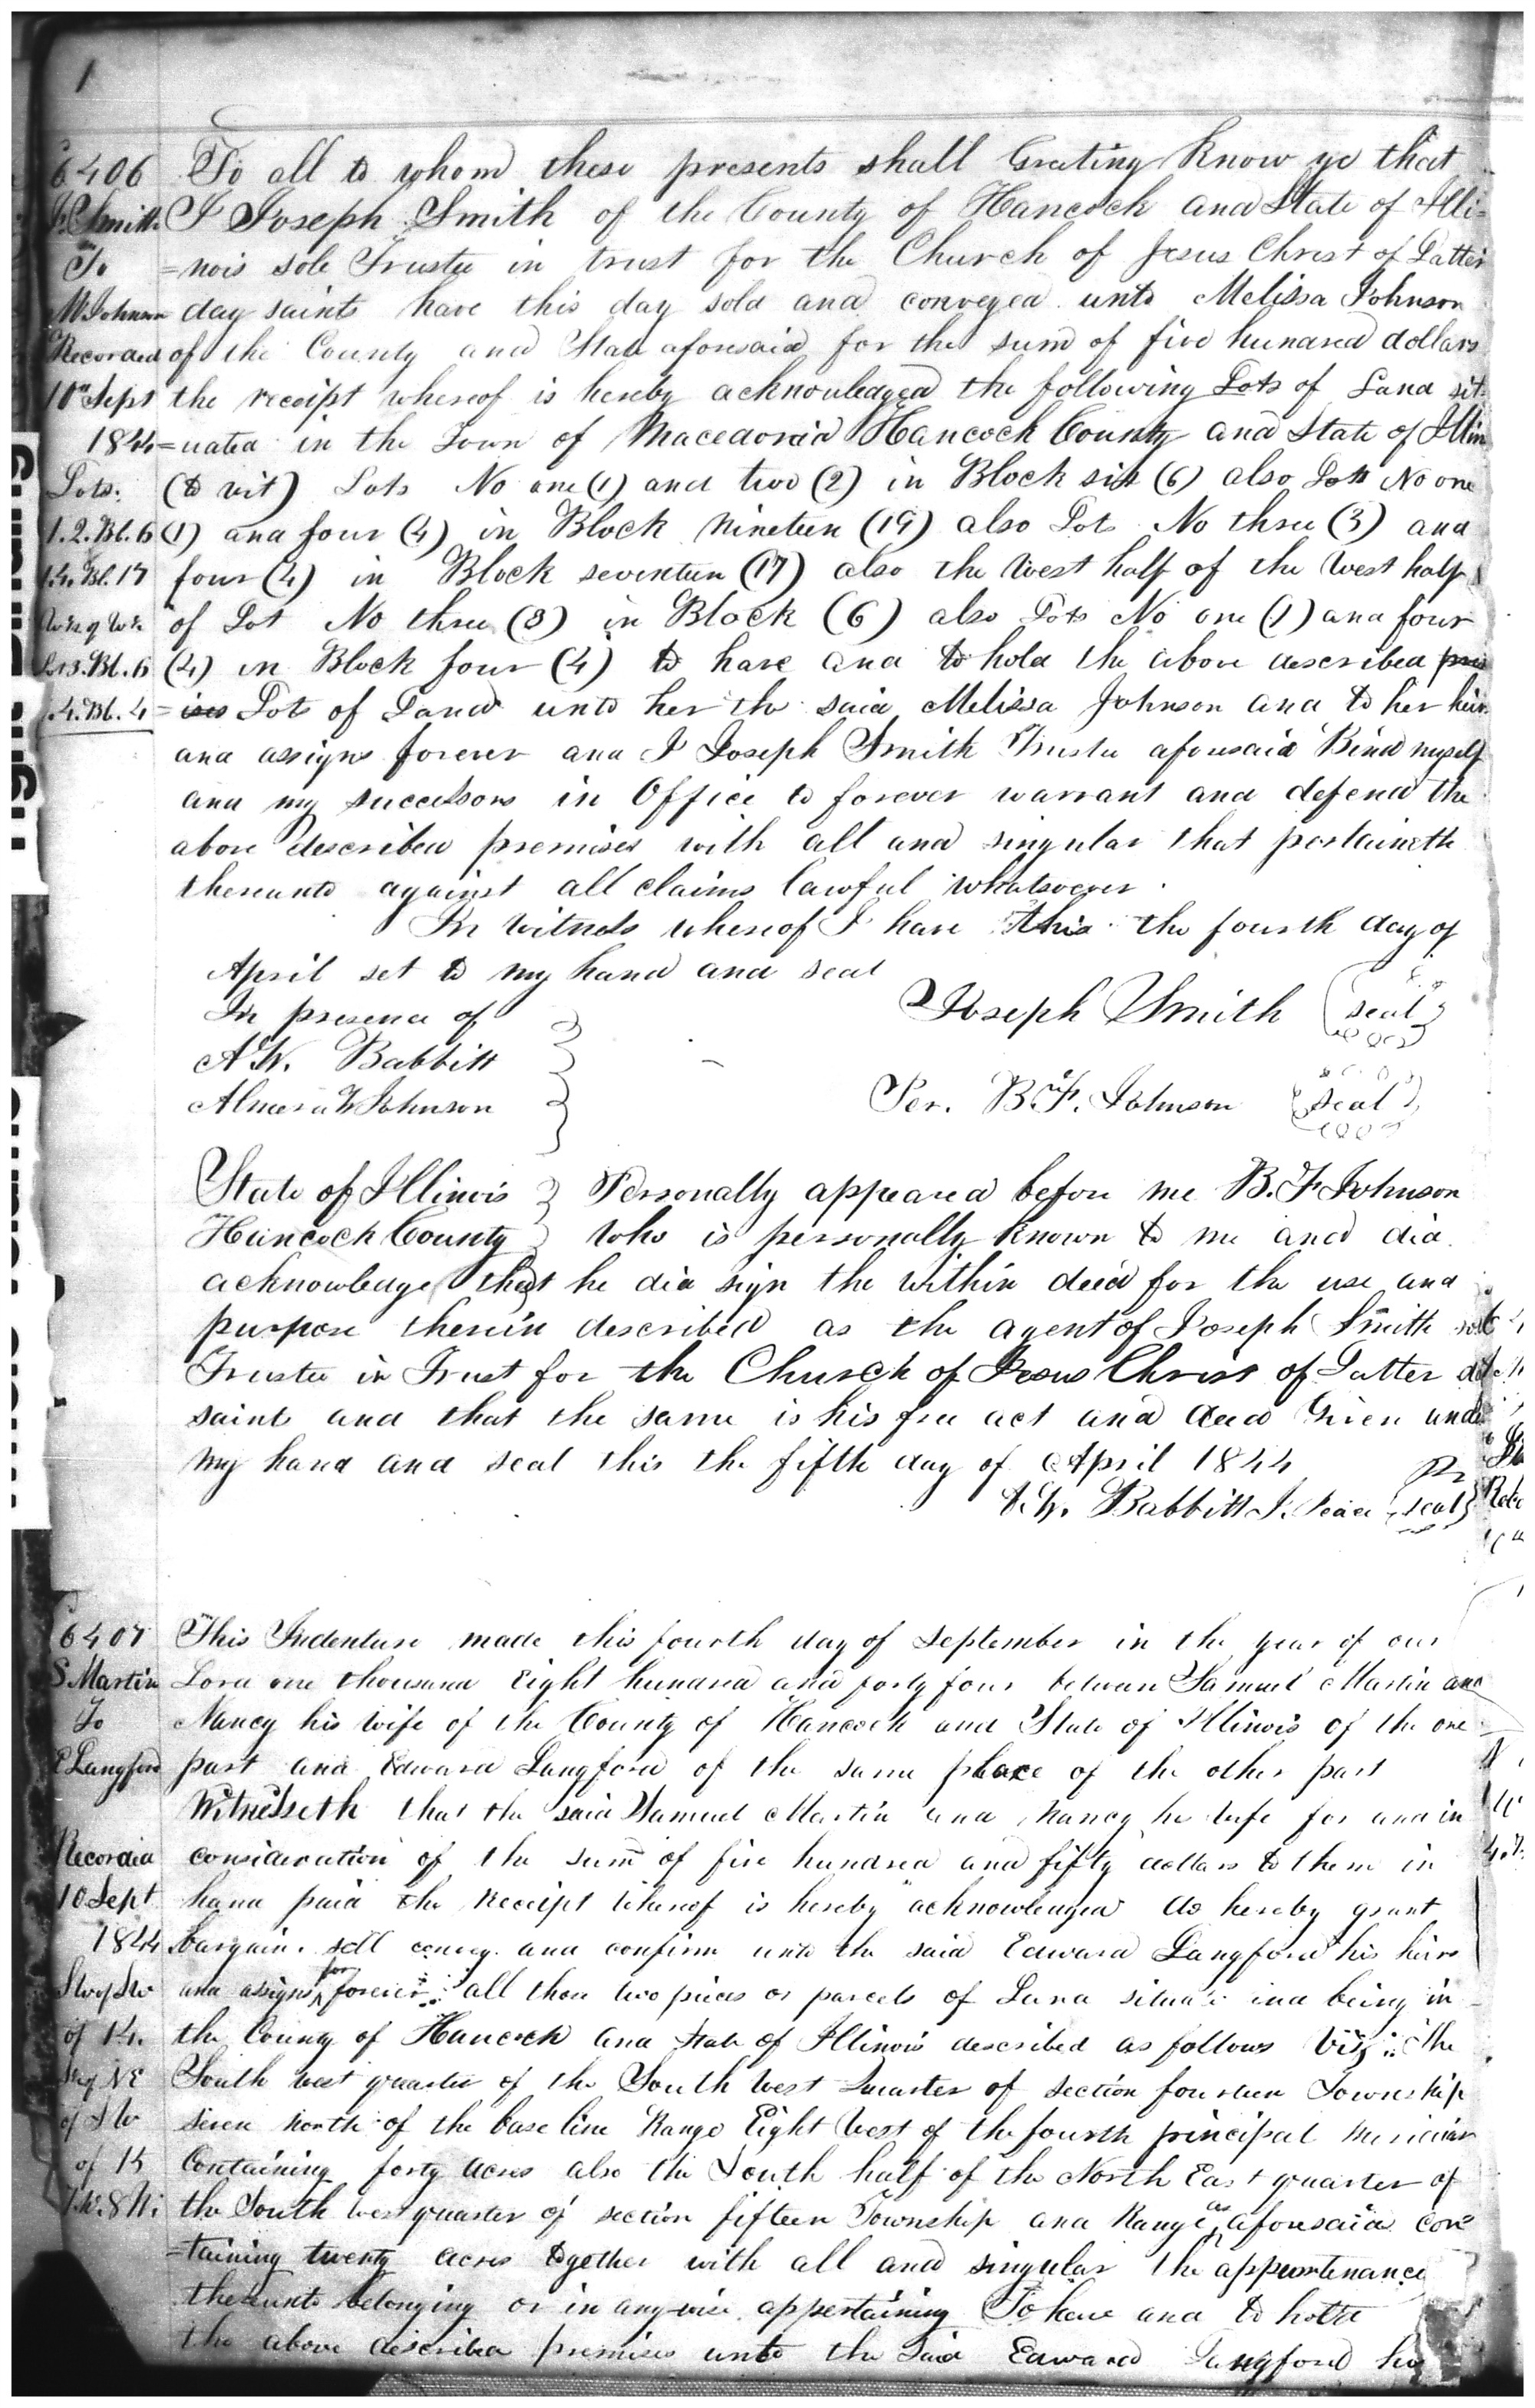 1
6406 To all to whom these presents shall Greeting Know ye that
J. Smith I Joseph Smith of the County of Hancock and State of Illi=
To =nois sole Trustee in trust for the Church of Jesus Christ of Latter
M Johnson day saints have this day sold and conveyed unto Melissa Johnson
Recorded of the County and State aforesaid for the sum of five hundred dollars
10th Sept the receipt whereof is hereby acknowledged the following Lots of Land sit
1844 =uated in the Town of Macedonia Hancock County and State of Illin
Lots. (to wit) Lots No one (1) and two (2) in Block six (6) also Lots No one
1.2. Bl. 6 (1) and four (4) in Block nineteen (19) also Lots No three (3) and
Bl. 17 four (4) in Block seventeen (17) also the West half of the West half
W½ of W½ of Lot No three (3) in Block (6) also Lots No one (1) and four
3. Bl. 6 (4) in Block four (4) to have and to hold the above described
4. Bl. 4 = Lots of Land unto her the said Melissa Johnson and to her heirs
and assigns forever and I Joseph Smith Trustee aforesaid Bind myself
and my successors in Office to forever warrant and defend the
above described premises with all and singular that pertaineth
thereunto against all claims lawful whatsoever.
In witness whereof I have this the fourth day of
April set to my hand and seal
In presence of Joseph Smith (seal)
A. W. Babbitt
Almera W Johnson Per. B. F. Johnson (seal)
State of Illinois } Personally appeared before me B. F Johnson
Hancock County } who is personally known to me and did
acknowledge that he did sign the within deed for the use and
purpose therein described as the agent of Joseph Smith sole
Trustee in Trust for the Church of Jesus Christ of Latter day
saints and that the same is his free act and deed Given under
my hand and seal this the fifth day of April 1844
A. W. Babbitt J. Peace (seal)
6407 This Indenture made this fourth day of September in the year of our
S. Martin Lord one thousand Eight hundred and forty four between Samuel Martin and
To Nancy his wife of the County of Hancock and State of Illinois of the one
E Langford part and Edward Langford of the same place of the other part
Witnesseth that the said Samuel Martin and Nancy he wife for and in
Recorded consideration of the sum of five hundred and fifty dollars to them in
10 Sept hand paid the receipt whereof is hereby acknowledged do hereby grant
1844 bargain. sell convey. and confirm unto the said Edward Langford his heirs
SW of SW and assigns for forever all those two pieces or parcels of Land situate and being in
of 14. the County of Hancock and State of Illinois described as follows Viz: The
NE South west quarter of the South West Quarter of section fourteen Township
of SW seven North of the base line Range Eight West of the fourth principal meridian
of 15 Containing forty acres also the South half of the North East quarter of
7N. 8W. the South west quarter of section fifteen Township and Range as aforesaid con
=taining twenty acres together with all and singular the appurtenance
thereunto belonging or in any wise appertaining To have and to hold
the above described premises unto the said Edward Langford his